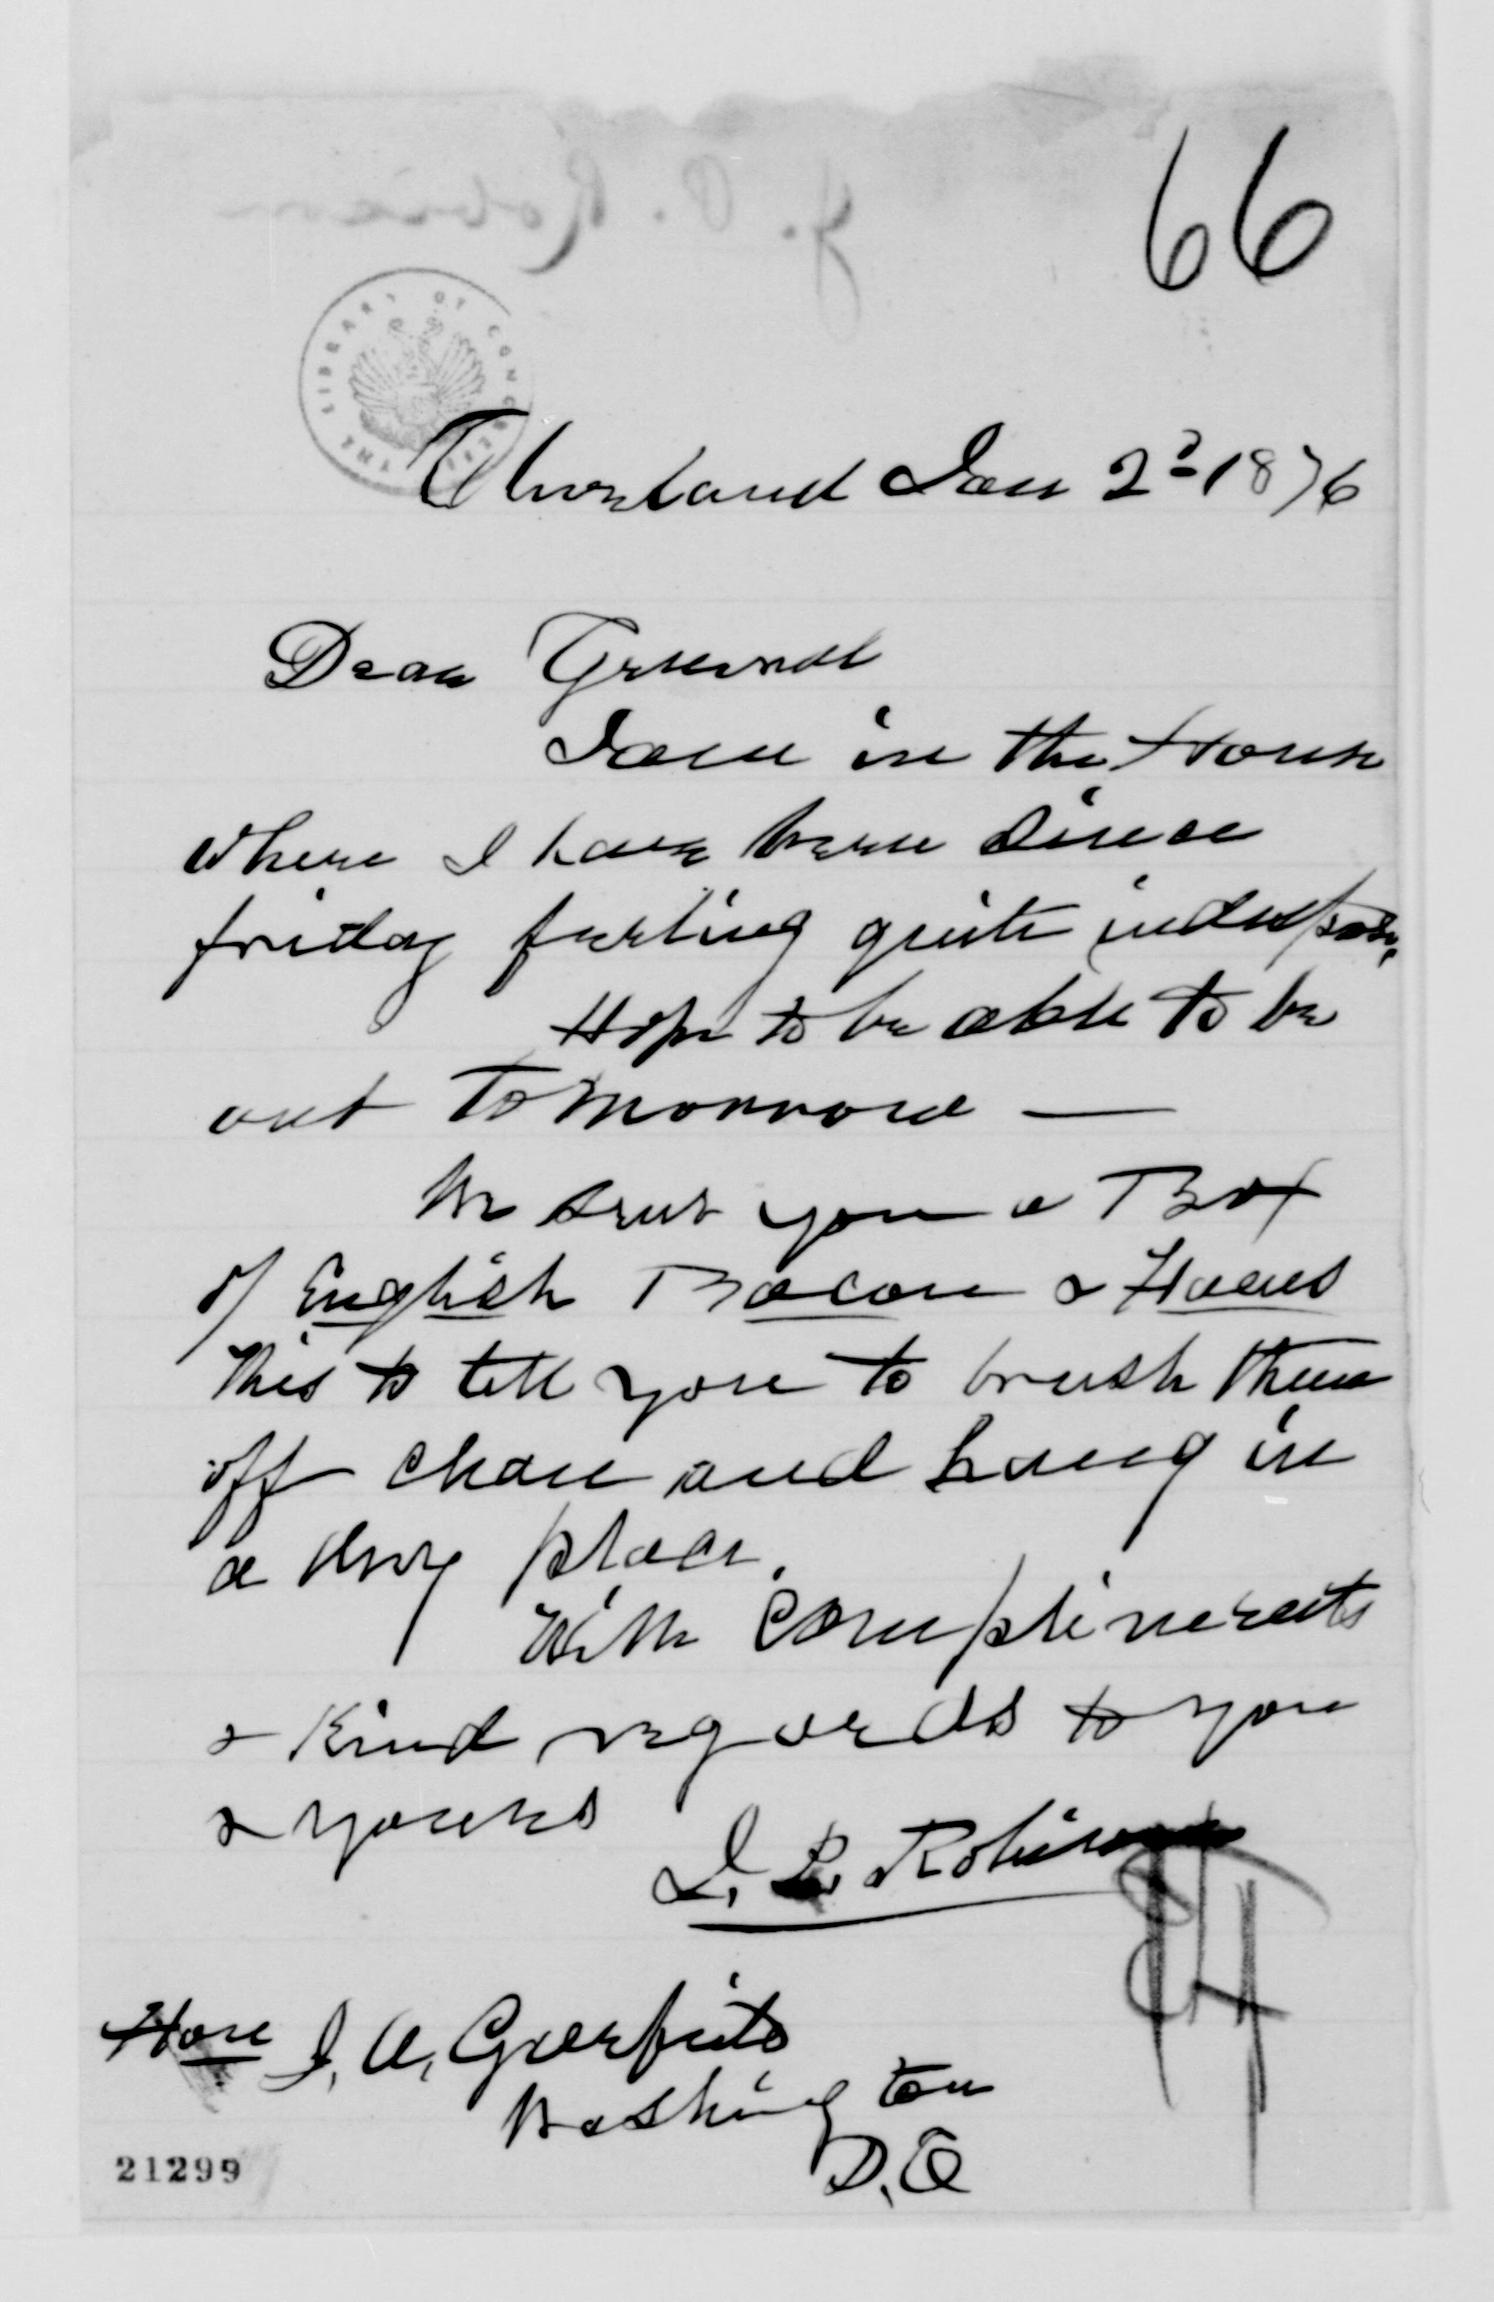 66
THE LIBRARY OF CONGRESS
Cleveland Jan 2d 1876
Dear General
I am in the House
where I have been since
friday feeling quite
Hope to be able to be
out tomorrow —
We sent you a Box
of English Bacon & Hams
This to tell you to brush them
off clean and hang in
a dry place.
With Compliments
& Kind regards to you
& yours
J. P. Robison
Hon J. A. Garfield
Washington
D.C
21299